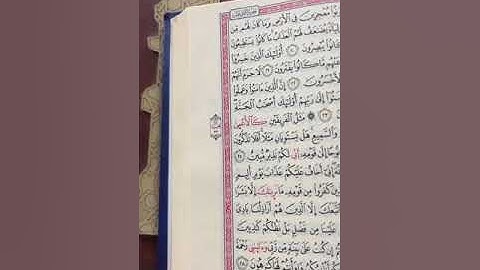 معجزين في الأرض وما كان لهم من
يضعف لهم العذاب ما كانوا يستطيعون
كانوا يبصرون ٢٠ أولئك الذين خسروا
عنهم ما كانوا يفترون ٢١ لا جرم أنهم
الأخسرون ٢٢ إن الذين ءامنوا وعملوا
إلى ربهم أولئك أصحب الجنة
٢٣ مثل الفريقين كالأعمى
والسميع هل يستويان مثلا أفلا تذكرون
نوحا إلى قومه إني لكم نذير مبين ٢٥
إني أخاف عليكم عذاب يوم أليم
الذين كفروا من قومه ما نرىك إلا بشرا
اتبعك إلا الذين هم أراذلنا بادي
علينا من فضل بل نظنكم كذبين
إن كنت على بينة من ربي وءاتىني رحمة
وأنتم لها كرهون ٢٨